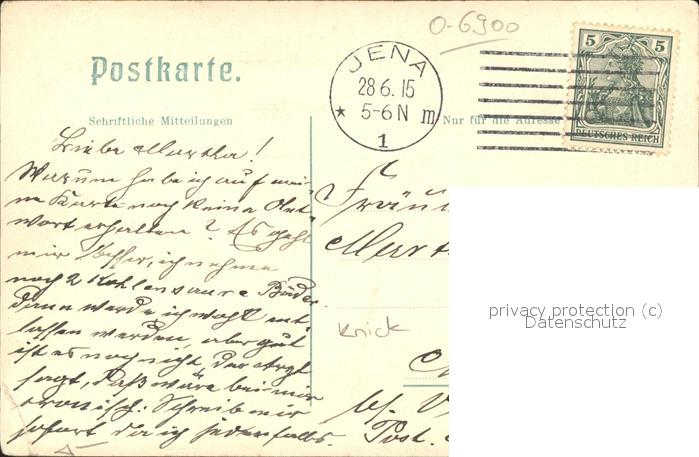 O-6900
Postkarte.
JENA
28 6. 15
5-6 N
m
1
5 5
DEUTSCHES REICH
Schriftliche Mitteilungen
Nur für die Adresse
Liebe Martha!
Warum habe ich auf mei-
ne Karte noch keine Ant-
wort erhalten? Es geht
mir besser, ich nehme
noch 2 Kohlensaure Bäder.
Dann werde ich wohl ent-
lassen werden, aber gut
ist es noch nicht, der Arzt
sagt, daß wäre bei mir
cronisch. Schreib mir
sofort da ich jedenfalls
Fräu
Mart
Knick
Post.
privacy protection (c)
Datenschutz